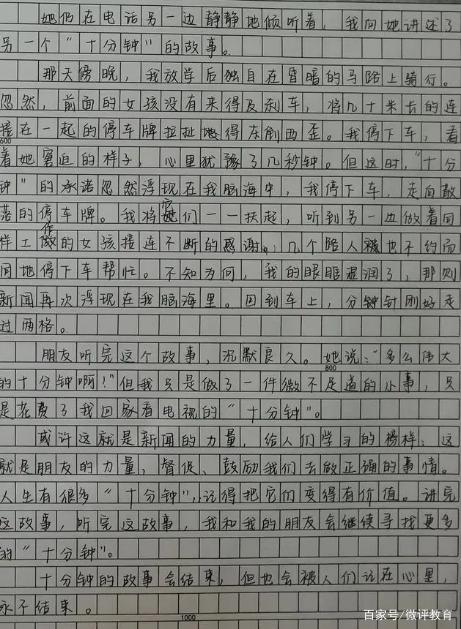 她们在电话另一边静静地倾听着，我向她讲述了
另一个“十分钟”的故事。
那天傍晚，我放学后独自在昏暗的马路上骑行。
忽然，前面的女孩没有来得及刹车，将几十米长的连
接在一起的停车牌拉扯得东倒西歪。我停下车，看
600
着她窘迫的样子，心里犹豫了几秒钟。但这时，“十分
钟”的承诺忽然浮现在我脑海中，我停下车，走向散
落的停车牌。我将它们一一扶起，听到另一边做着同
样工作的女孩接连不断的感谢。几个路人竟也不约而
同地停下车帮忙。不知为何，我的眼眶湿润了，那则
新闻再次浮现在我脑海里。回到车上，分钟针刚好走
过两格。
朋友听完这个故事，沉默良久。她说：“多么伟大
800
的十分钟啊！”但我只是做了一件微不足道的小事，只
是花费了我回家看电视的“十分钟”。
或许这就是新闻的力量，给人们学习的榜样；这
就是朋友的力量，督促、鼓励我们去做正确的事情。
人生有很多“十分钟”，记得把它们变得有价值。讲完
这故事，听完这故事，我和我的朋友会继续寻找更多
的“十分钟”。
十分钟的故事会结束，但也会被人们记在心里，
永不结束。
1000
百家号/微评教育